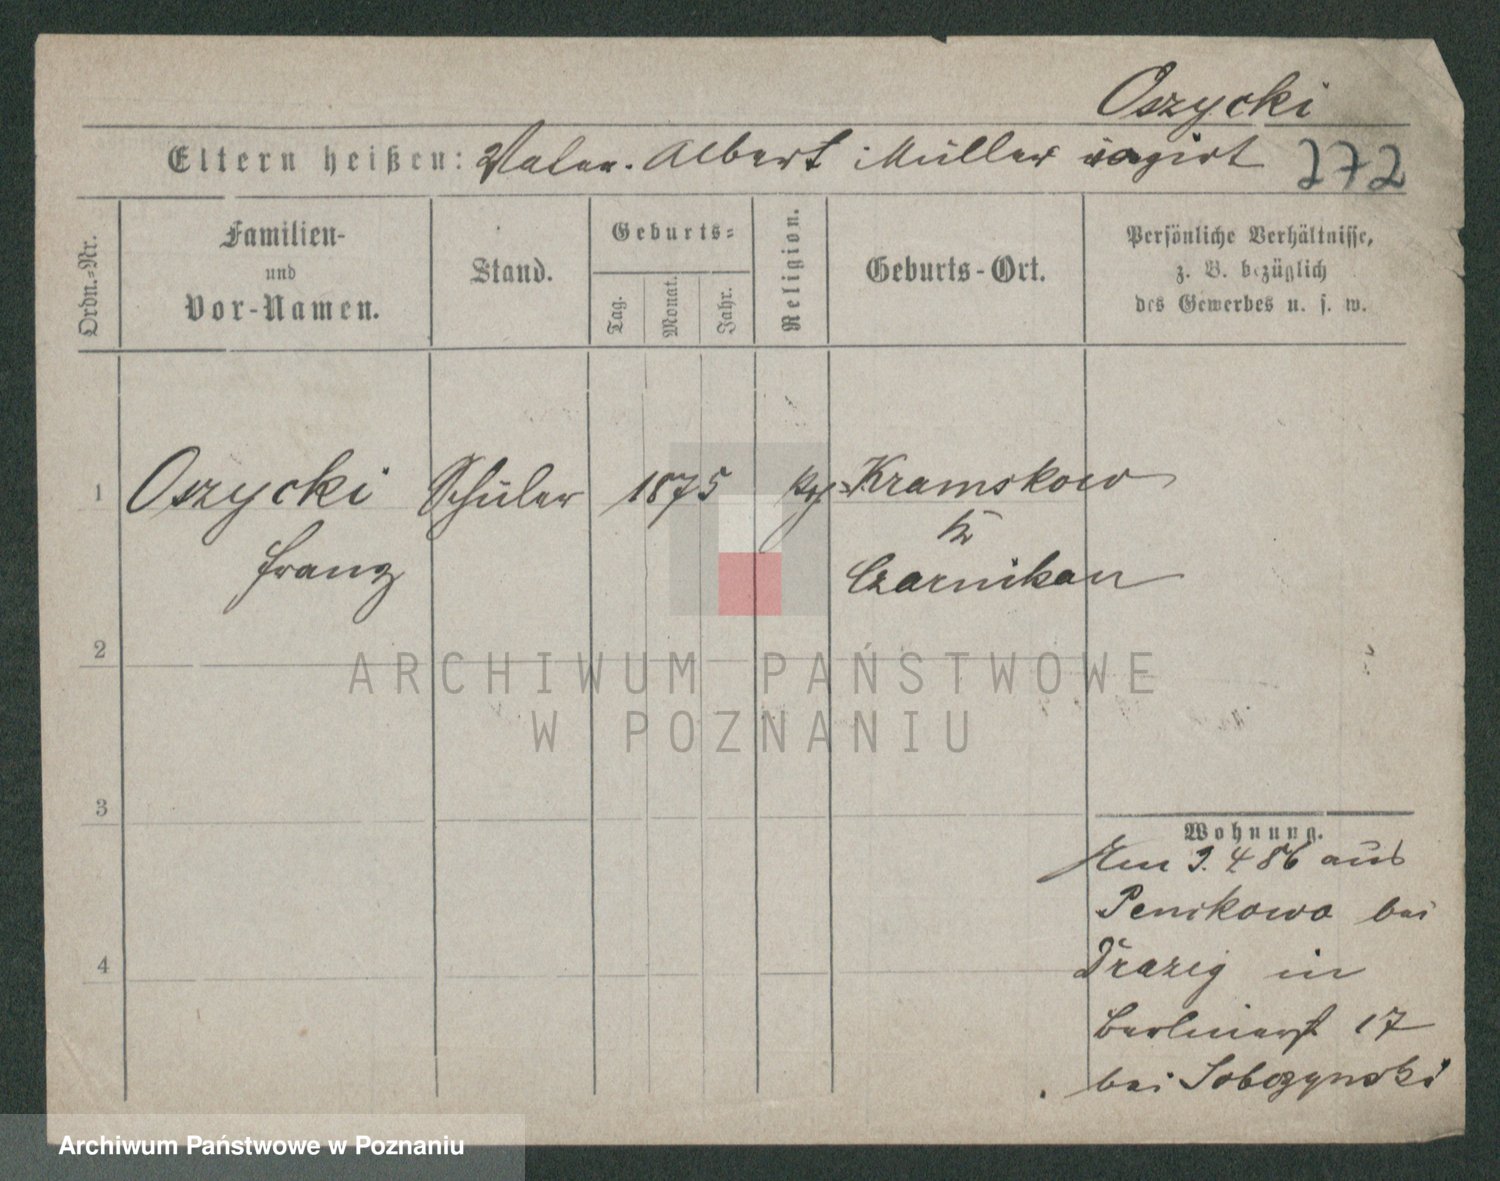 Oszycki
Eltern heißen: Vater. Albert Müller
272
Ordn.-Nr.
Familien-
und
Vor-Namen.
Stand.
Geburts-
Tag.
Monat.
Jahr.
Religion.
Geburts-Ort.
Persönliche Verhältnisse,
z. B. bezüglich
des Gewerbes u. s. w.
1
Oszycki
Franz
Schüler
1875
Kramskow
Czarnikau
2
3
4
Wohnung.
Am 3. 4 86 aus
Penskowo bei
Drazig in
Berlinerst 17
bei Sobczynski
ARCHIWUM PAŃSTWOWE
W POZNANIU
Archiwum Państwowe w Poznaniu